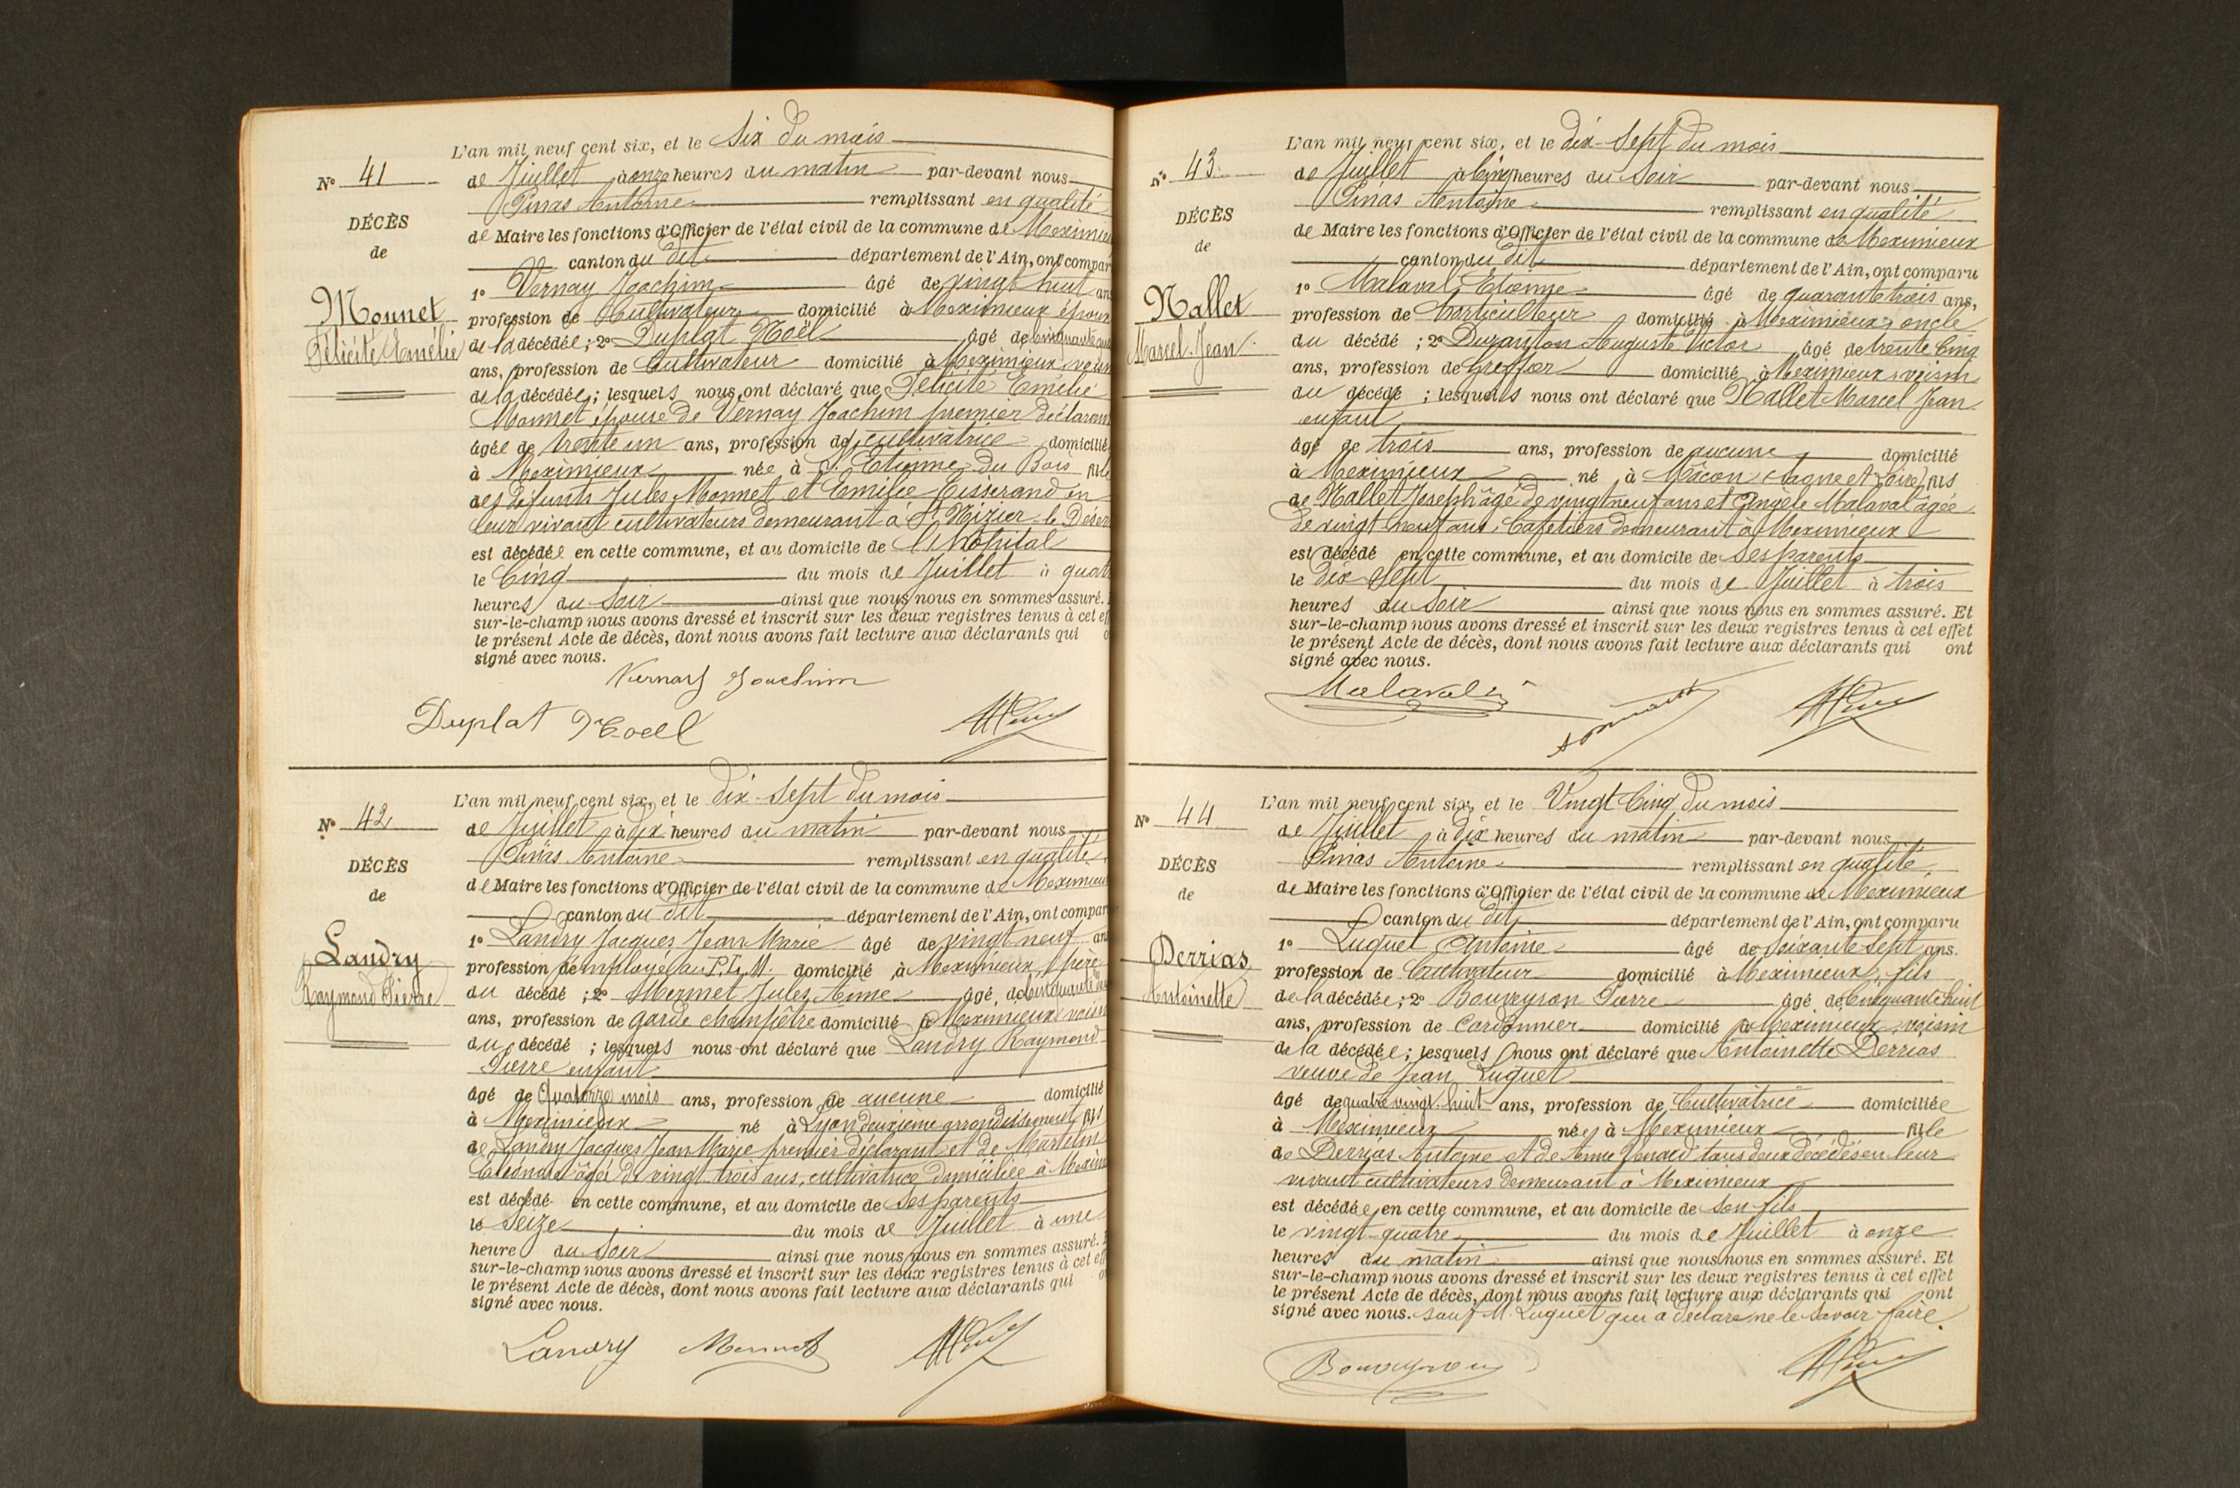 L'an mil neuf cent six, et le Six du mois
N° 41
de Juillet à onze heures du matin par-devant nous
Pinas Antoine remplissant en qualité
DÉCÈS
de Maire les fonctions d'Officier de l'état civil de la commune de Meximieu
de
canton du dit département de l'Ain, ont compar
1° Vernay Joachim âgé de vingt huit an
Monnet
profession de Cultivateur domicilié à Meximieux époux
Félicité Emélie
de la décédée; 2° Duplat Noël âgé de cinquante
ans, profession de Cultivateur domicilié à Meximieux, voisin
de la décédée; lesquels nous ont déclaré que Félicité Emélie
Monnet épouse de Vernay Joachim premier déclarant
âgée de trente un ans, profession de cultivatrice domicilié
à Meximieux née à St Etienne du Bois fille
des défunts Jules Monnet et Emilie Tisserand en
leur vivant cultivateurs demeurant à St Nizier le Déser
est décédée en cette commune, et au domicile de l'Hôpital
le Cinq du mois de Juillet à quat
heures du Soir ainsi que nous nous en sommes assuré.
sur-le-champ nous avons dressé et inscrit sur les deux registres tenus à cet eff
le présent Acte de décès, dont nous avons fait lecture aux déclarants qui o
signé avec nous.
Vernay Joachim
Duplat Noell
L'an mil neuf cent six, et le dix-Sept du mois
N° 42
de Juillet à dix heures du matin par-devant nous
Pinas Antoine remplissant en qualité
DÉCÈS
de Maire les fonctions d'Officier de l'état civil de la commune de Meximieu
de
canton du dit département de l'Ain, ont compar
Landry
1° Landry Jacques Jean Marie âgé de vingt neuf an
profession de employé au P.L.M. domicilié à Meximieux, père
Raymond Pierre
du décédé; 2° Mermet Jules Aimé âgé de cinquante
ans, profession de garde champêtre domicilié à Meximieux voisin
du décédé; lesquels nous ont déclaré que Landry Raymond
Pierre enfant
âgé de Quatorze mois ans, profession de aucune domicilié
à Meximieux né à Lyon deuxième arrondissement fils
de Landry Jacques Jean Marie premier déclarant et de Martelin
Eléonore âgée de vingt trois ans, cultivatrice domiciliée à Mexim
est décédé en cette commune, et au domicile de Ses parents
le Seize du mois de Juillet à une
heure du Soir ainsi que nous nous en sommes assuré.
sur-le-champ nous avons dressé et inscrit sur les deux registres tenus à cet eff
le présent Acte de décès, dont nous avons fait lecture aux déclarants qui o
signé avec nous.
Landry Mermet
L'an mil neuf cent six, et le dix-Sept du mois
N° 43
de Juillet à Cinq heures du Soir par-devant nous
Pinas Antoine remplissant en qualité
DÉCÈS
de Maire les fonctions d'Officier de l'état civil de la commune de Meximieux
de
canton du dit département de l'Ain, ont comparu
1° Malaval Etienne âgé de quarante trois ans,
Nallet
profession de horticulteur domicilié à Meximieux, oncle
Marcel Jean
du décédé; 2° Duranton Auguste Victor âgé de trente Cinq
ans, profession de Greffier domicilié à Meximieux, voisin
du décédé; lesquels nous ont déclaré que Nallet Marcel Jean
enfant
âgé de trois ans, profession de aucune domicilié
à Meximieux né à Mâcon (Saône et Loire) fils
de Nallet Joseph âgé de vingt neuf ans et Angèle Malaval âgée
de vingt neuf ans, Cafetiers demeurant à Meximieux
est décédé en cette commune, et au domicile de Ses parents
le dix Sept du mois de Juillet à trois
heures du Soir ainsi que nous nous en sommes assuré. Et
sur-le-champ nous avons dressé et inscrit sur les deux registres tenus à cet effet
le présent Acte de décès, dont nous avons fait lecture aux déclarants qui ont
signé avec nous.
Malaval
L'an mil neuf cent six, et le Vingt Cinq du mois
N° 44
de Juillet à Dix heures du matin par-devant nous
Pinas Antoine remplissant en qualité
DÉCÈS
de Maire les fonctions d'Officier de l'état civil de la commune de Meximieux
de
canton du dit département de l'Ain, ont comparu
Derrias
1° Luquet Antoine âgé de Soixante Sept ans.
profession de Cultivateur domicilié à Meximieux, fils
Antoinette
de la décédée; 2° Bouveyron Pierre âgé de Cinquante huit
ans, profession de Cordonnier domicilié à Meximieux, voisin
de la décédée; lesquels nous ont déclaré que Antoinette Derrias
veuve de Jean Luquet
âgé de quatre vingt huit ans, profession de Cultivatrice domiciliée
à Meximieux née à Meximieux fille
de Derrias Antoine et de Anne Venard tous deux décédés en leur
vivant cultivateurs demeurant à Meximieux
est décédée en cette commune, et au domicile de Son fils
le vingt-quatre du mois de Juillet à onze
heures du matin ainsi que nous nous en sommes assuré. Et
sur-le-champ nous avons dressé et inscrit sur les deux registres tenus à cet effet
le présent Acte de décès, dont nous avons fait lecture aux déclarants qui ont
signé avec nous. sauf M. Luquet qui a déclaré ne le savoir faire.
Bouveyron